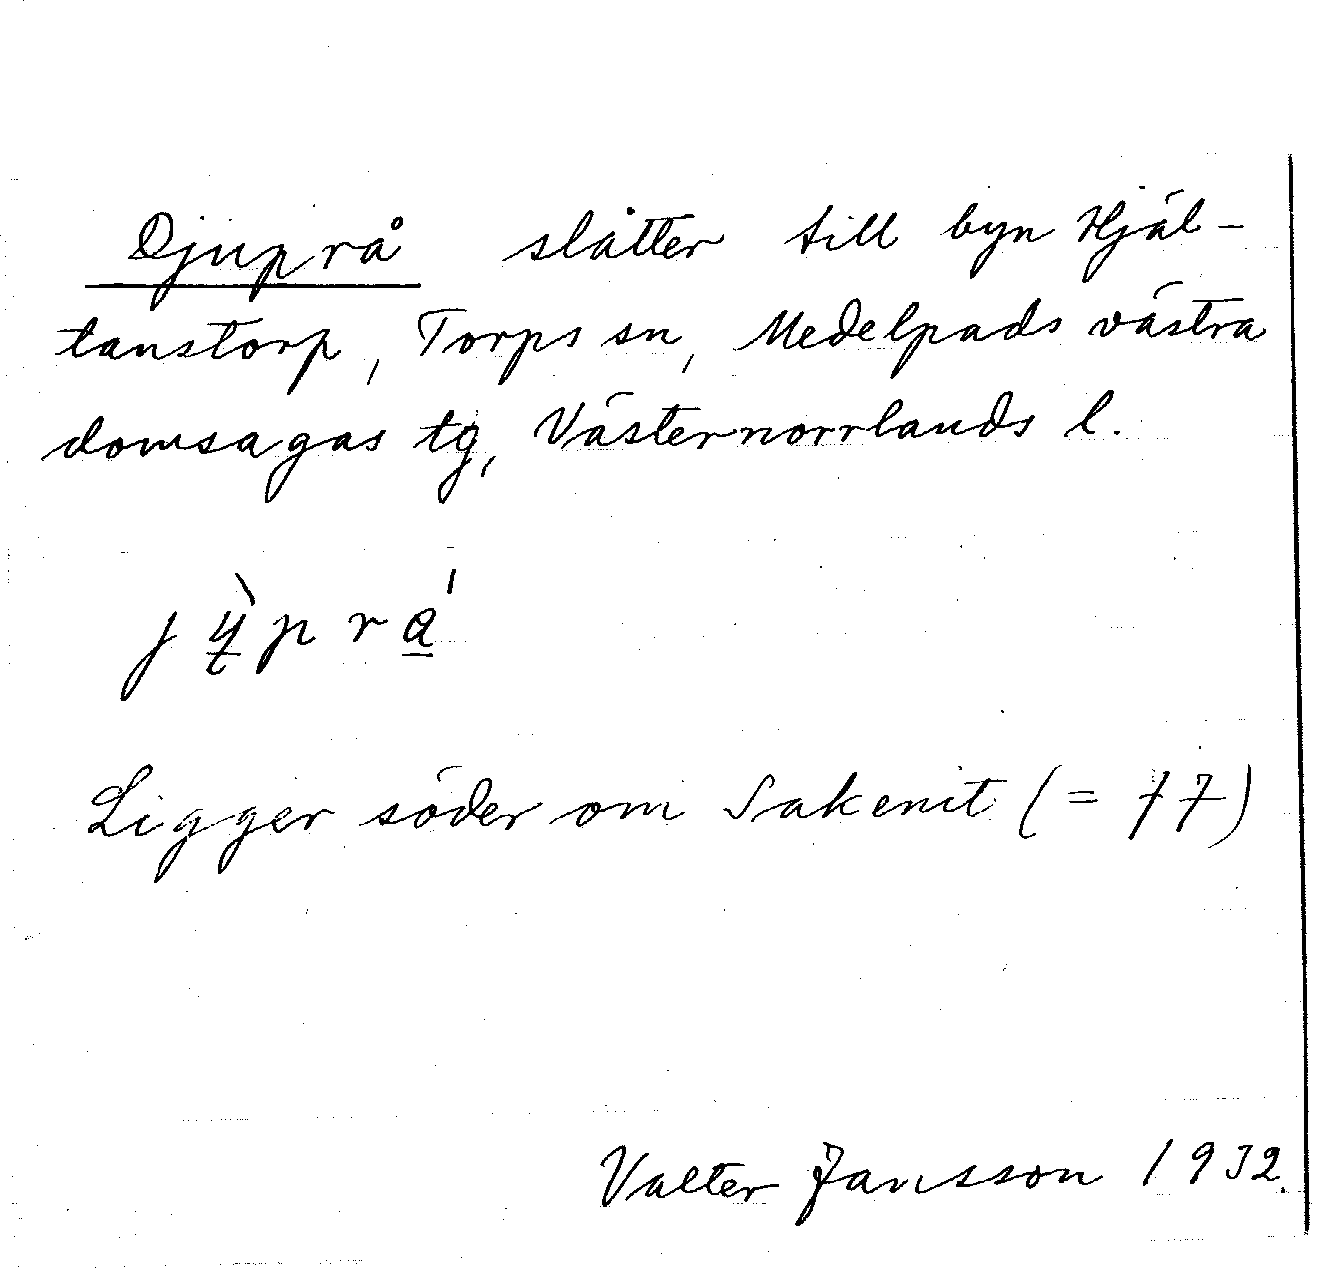 Djuprå slåtter till byn Hjäl-
tanstorp, Torps sn, Medelpads västra
domsagas tg, Västernorrlands l.
Ligger söder om Sakenit (= 77)
Valter Jansson 1932.